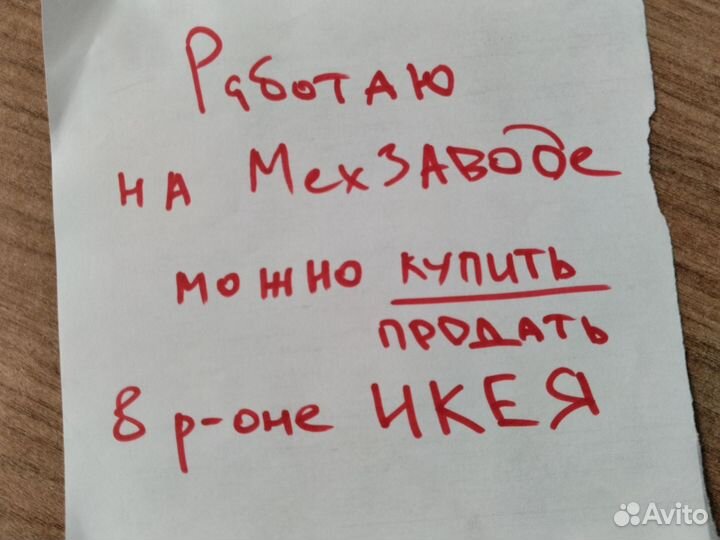 Работаю
на МехЗаводе
можно купить
продать
в р-оне ИКЕЯ
Avito